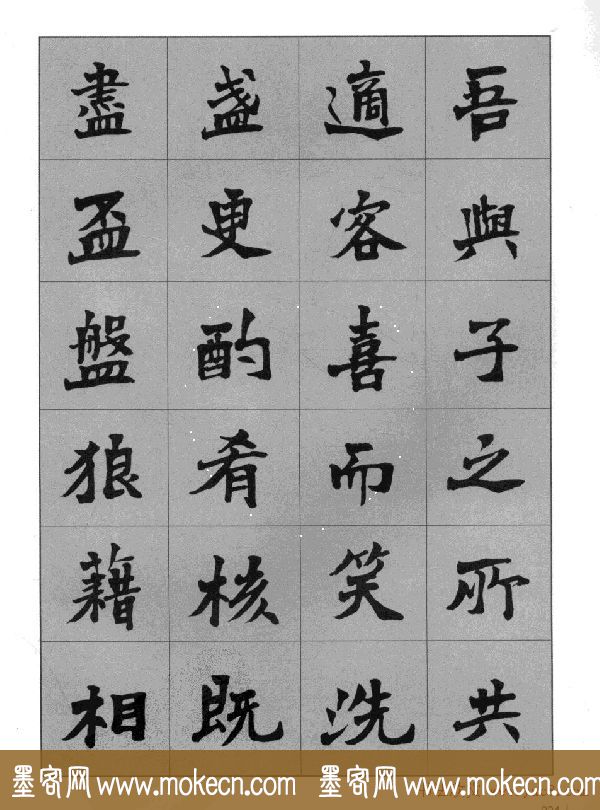 吾與子之所共
適容喜而笑洗
盏更酌肴核既
盡盃盤狼藉相
墨客网 www.mokecn.com 墨客网 www.mokecn.com